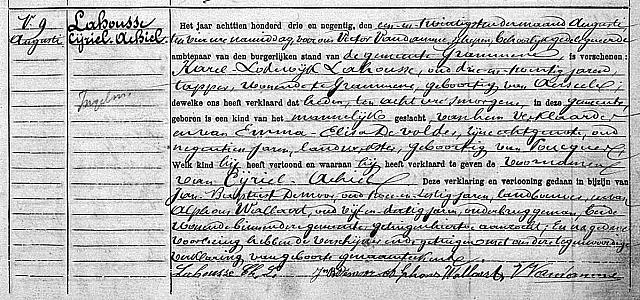 N. 9
Augusti
Lahousse
Cyriel-Achiel.
Het jaar achttien honderd drie en negentig, den een en twintigsten der maand Augusti
ten vier ure namiddag, voor ons Victor Vandamme, schepen, behoorlijk gedelegueerde
ambtenaar van den burgerlijken stand van de gemeente Grammene is verschenen:
Karel Lodewijk Lahousse, oud drie en twintig jaren,
wonende te Grammene, geboortig van Aerseele;
dewelke ons heeft verklaard dat heden, ten acht ure 's morgens, in deze gemeente
geboren is een kind van het mannelijke geslacht, van hem verklaarder
en van Emma-Elisa De volder, zijne echtgenote, oud
negentien jaren, geboortig van
Welk kind hij heeft vertoond en waaraan hij heeft verklaard te geven de voornamen
van Cyriel-Achiel. Deze verklaring en vertooning gedaan in bijzijn van
Jan-Baptist Demoor, oud jaren, landbouwer, en van
Alphons Wallaert, oud vijf en dertig jaren, beide
wonende binnen deze gemeente, getuigen hiertoe aanzocht, en na gedane
voorlezing hebben de verschijner en de getuigen met ons de tegenwoordige
verklaring van geboorte
Lahousse Ch. L. J. B. Demoor Alphons Wallaert V. Vandamme